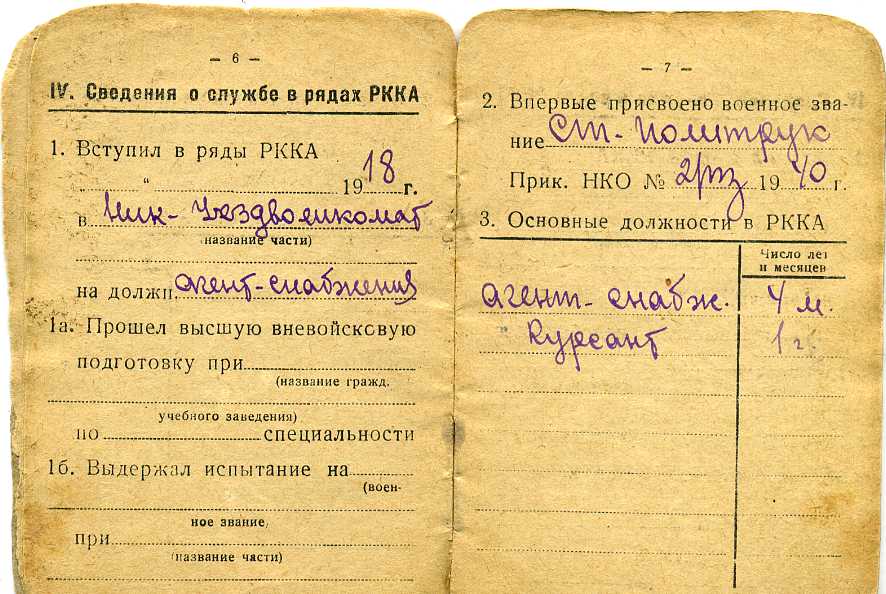 — 6 —
IV. Сведения о службе в рядах РККА
1. Вступил в ряды РККА
„ “ 1918 г.
в Ник-Уездвоенкомат
(название части)
на должн. агент-снабжения
1а. Прошел высшую вневойсковую
подготовку при
(название гражд.
учебного заведения)
по специальности
1б. Выдержал испытание на
(воен-
ное звание)
при
(название части)
— 7 —
2. Впервые присвоено военное зва-
ние Ст-Политрук
Прик. НКО № 1940 г.
3. Основные должности в РККА
Число лет
и месяцев
агент-снабж. 4 м.
" Курсант 1 г.